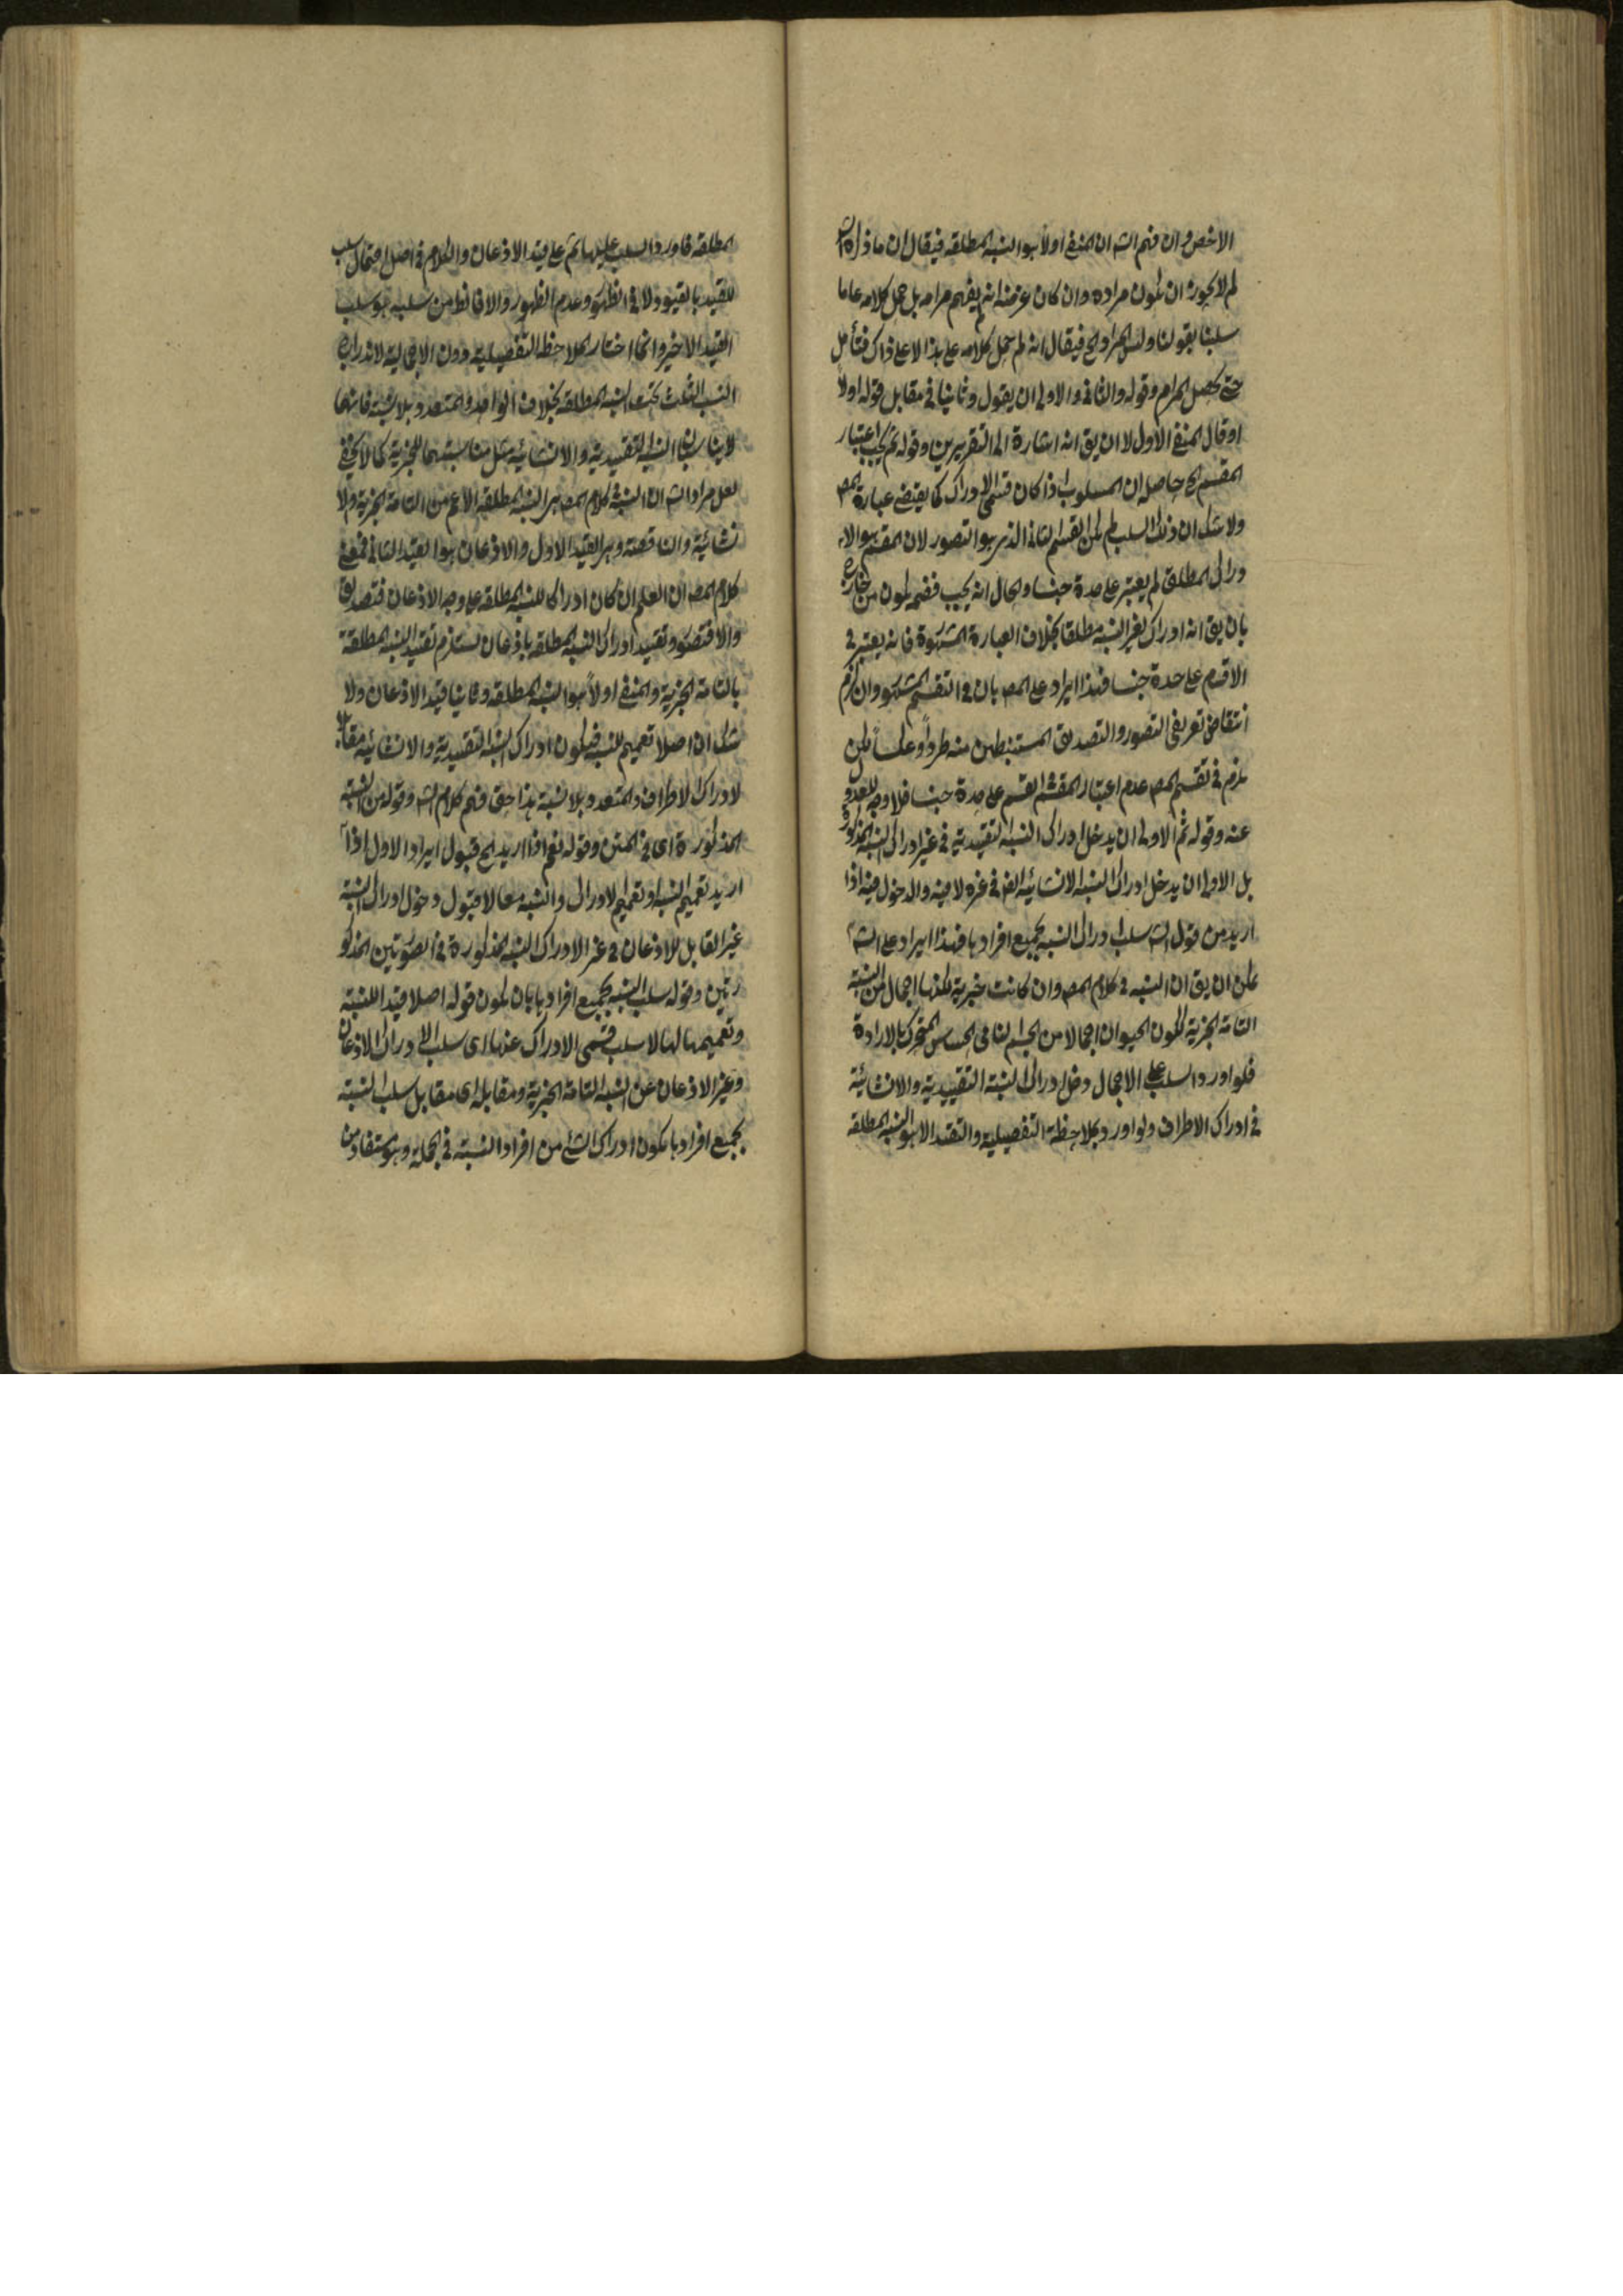 الاخص وان فهم الشه ان المنفى اولا هو النسبه المطلقه فيقال ان ما ذكره الشه
لم لا يجوز ان يكون مراده وان كان غرضه انه لم يفهم مرامه بل حمل كلامه عاما
سلبنا بقولنا وليس المراد الخ فيقال انه لم يحمل كلامه على هذا لا على ذاك فتأمل
حتى يحصل المرام وقوله والثانى والاولى ان يقول وثانيا فى مقابل قوله اولا
او قال المنفى الاول لا ان يق انه اشارة الى التقريرين وقوله ثم يجب اعتبار
المقسم الخ حاصله ان المسلوب اذا كان قسمى الادراك كما يقتضى عبارة المص
ولا شك ان ذلك السلب لم يكن القسم الثانى الذى هو التصور لان المقسم هو الا
دراك المطلق لم يعتبر على حدة جنسا والحال انه يجب فضمه يكون من خارج
بان يق انه ادراك لغير النسبه مطلقا بخلاف العبارة المشهوة فانه يعتبر فى
الاقسام على حدة جنسا فهذا ايراد على المص بان فى التقسيم المشهو وان لزم
انتقاض تعريفى التصور والتصديق المستنبطين منه طردا وعكسا لكن
يلزم فى تقسيم المص عدم اعتبار المقسم فى القسم على حدة جنسا فلا وجه للعدول
عنه وقوله ثم الاولى ان يدخل ادراك النسبه التقييدية فى غير ادراك النسبه المذكورة
بل الاولى ان يدخل ادراك النسبه الانشائيه ايض فى غيره لا فيه والدخول فيه اذا
اريد من قول الشه سلب ادراك النسبه بجميع افرادها فهذا ايراد على الشه
يمكن ان يق ان النسبه فى كلام المص وان كانت خبرية لكنها اجمال من النسبة
التامة الخبرية ككون الحيوان اجمالا من الجسم النامى الحساس المتحرك بالارادة
فلو اورد السلب على الاجمال دخل ادراك النسبة التقييدية والانشائية
فى ادراك الاطراف ولو اورد بملاحظة التفصيلية والتقييد الا هو النسبه المطلقه
المطلقه فاورد السلب عليها ثم على قيد الاذعان والكلام فى اصل احتمال سلب
للقيد بالقيود لا فى الظهو وعدم الظهور والا فالظ من سلبه هو سلب
القيد الاخير وانما اختار الملاحظه التفصيلية دون الاجمالية لاندراج
النسب الثلث تحت النسبه المطلقه بخلاف الواحد والمتعدد بلا نسبة فانهما
لا يناسبان النسبه التقييدية والانشائية مثل مناسبتهما للخبرية كما لا يخفى
لعل مراد الشه ان النسبة فى كلام المص هى النسبه المطلقه الاعم من التامة الخبرية والا
نشائية والناقصة وهى القيد الاول والاذعان هو القيد الثانى فمعنى
كلام المص ان العلم ان كان ادراكا للنسبه المطلقه على وجه الاذعان فتصديق
والا فتصو وتقييد ادراك النسبه المطلقه باذعان يستلزم تقييد النسبه المطلقة
بالتامة الخبرية والمنفى اولا هو النسبه المطلقه وثانيا قيد الاذعان ولا
شك ان اصلا تعميم للنسبه فيكون ادراك النسبه التقييدية والانشائية مقابلا
لادراك الاطراف والمتعدد بلا نسبة هذا حق فهم كلام الشه وقوله من النسبة
المذكورة اى فى المتن وقوله نعم اذا اريد الخ قبول ايراد الاول اذا
اريد تعميم النسبه او تعميم الادراك والنسبه معا لا قبول دخول ادراك النسبة
غير القابل للاذعان فى غير الادراك النسبه المذكورة فى الصوتين المذكو
رتين وقوله سلب النسبه بجميع افرادها بان يكون قوله اصلا قيدا للنسبة
وتعميمها لها لا سلب قسمى الادراك عنها اى سلب الادراك الاذعان
وغير الاذعان عن النسبه التامة الخبرية ومقابله اى مقابل سلب النسبة
بجميع افرادها يكون ادراك الشئ من افراد النسبة فى الجملة وهو مستفاد من